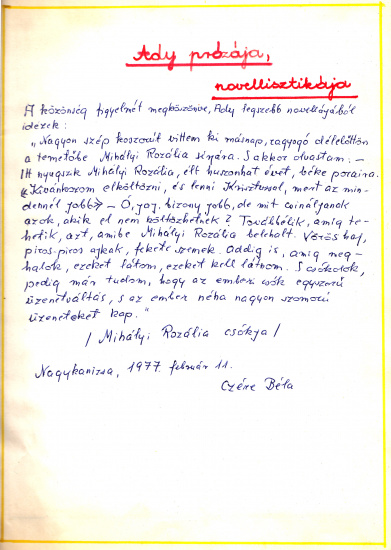 Ady prózája,
novellisztikája
A közönség figyelmét megköszönve, Ady legszebb novellájából
idézek:
"Nagyon szép koszorút vittem ki másnap, ragyogó délelőttön
a temetőbe Mihályi Rozália sírjára. S akkor olvastam: -
Itt nyugszik Mihályi Rozália, élt huszonhat évet, béke poraira.
"Kívánkozom elköltözni, és lenni Krisztussal, mert az min-
dennél jobb" - Ó, jaj, bizony jobb, de mit csináljanak
azok, akik el nem költözhetnek? Továbbélik, amíg te-
hetik, azt, amibe Mihályi Rozália belehalt. Vörös haj,
piros-piros ajkak, fekete szemek. Addig is, amíg meg-
halok, ezeket látom, ezeket kell látnom. S csókolok,
pedig már tudom, hogy az emberi csók egyszerű
üzenetváltás, s az ember néha nagyon szomorú
üzeneteket kap."
/ Mihályi Rozália csókja /
Nagykanizsa, 1977. február 11.
Czére Béla